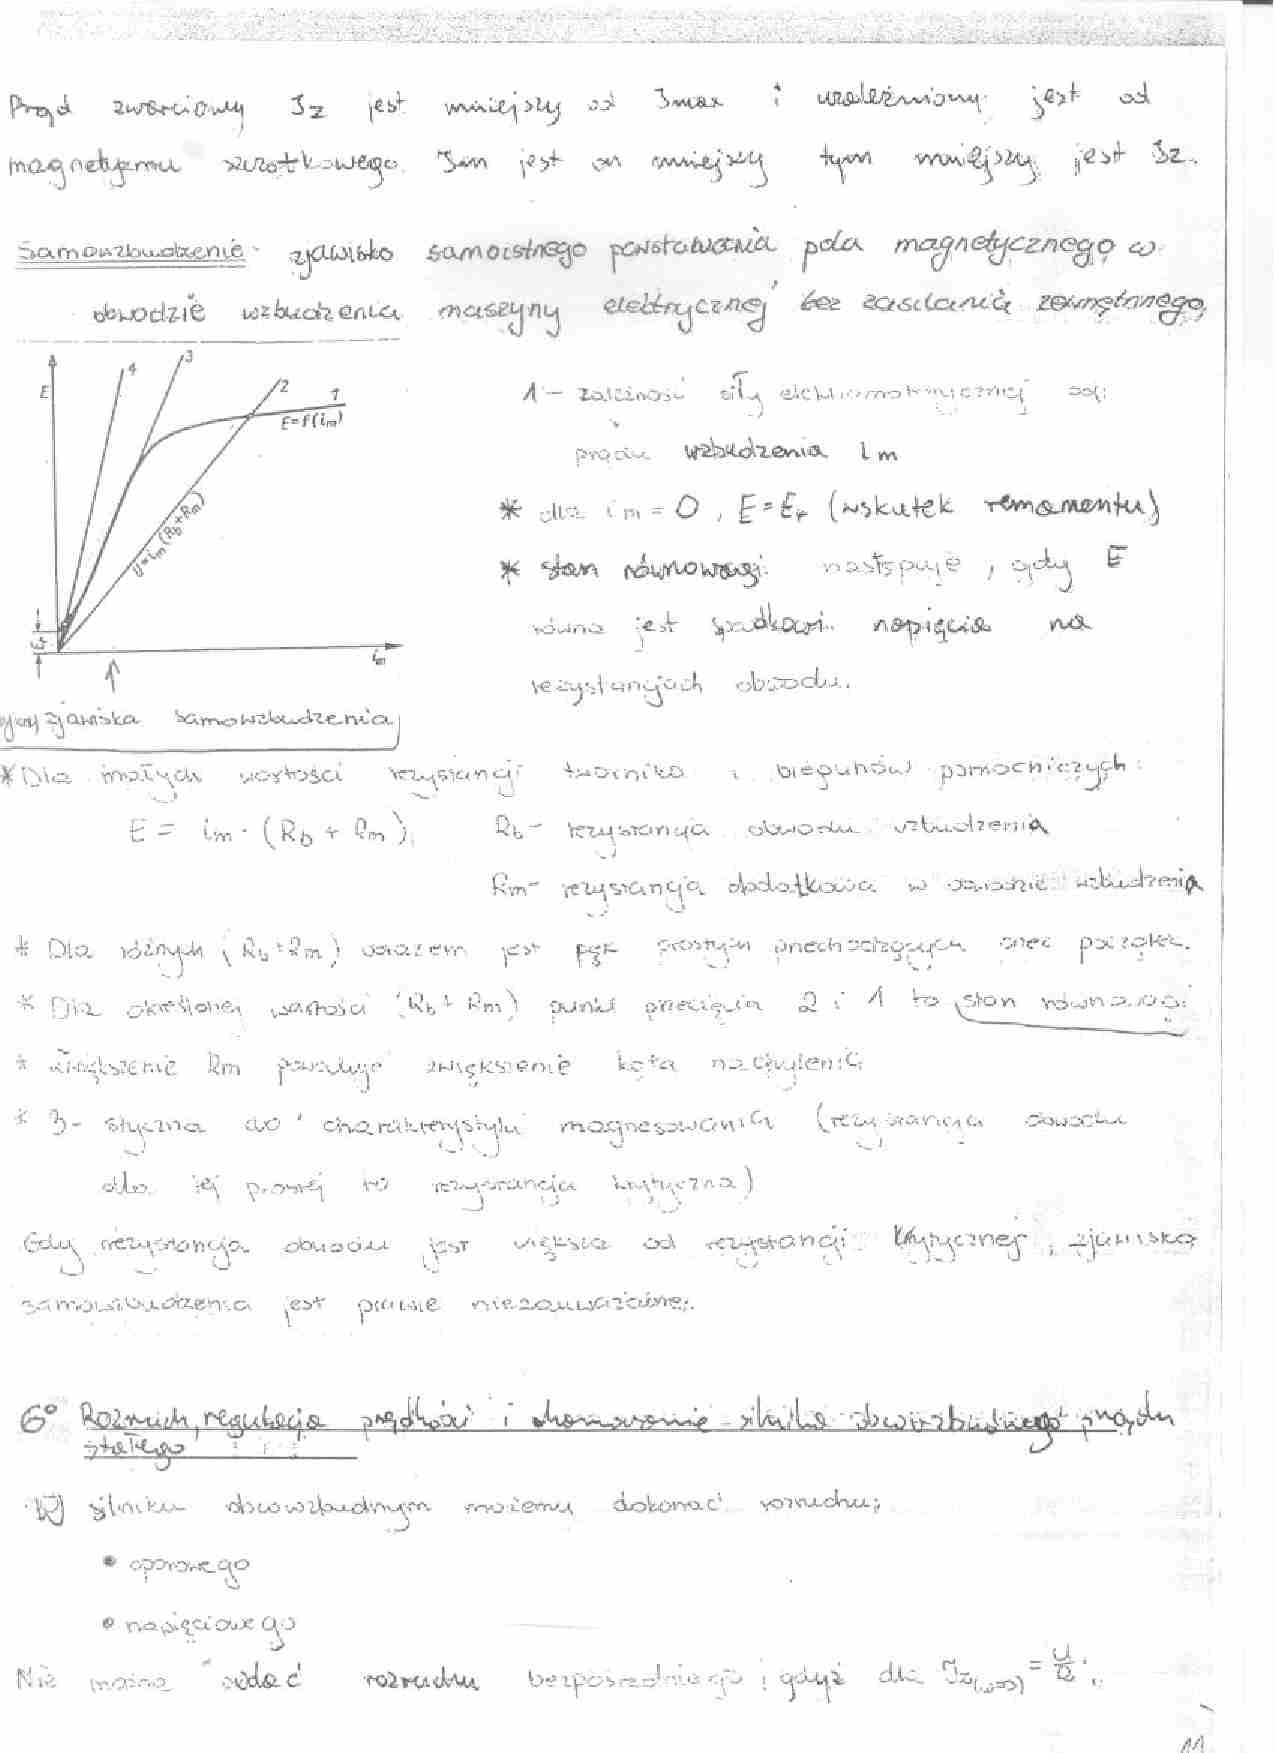 Prąd zwarciowy Iz jest mniejszy od Imax i uzależniony jest od
magnetyzmu szczątkowego. Im jest on mniejszy tym mniejszy jest Iz.
Samowzbudzenie - zjawisko samoistnego powstawania pola magnetycznego w
obwodzie wzbudzenia maszyny elektrycznej bez zasilania zewnętrznego,
E
4
3
2
1
E=f(im)
U=im(Rb+Rm)
Er
im
zjawiska samowzbudzenia
1 - zależność siły elektromotorycznej od
prądu wzbudzenia im
* dla im = 0, E = Er (wskutek remamentu)
* stan równowagi następuje, gdy E
równa jest spadkowi napięcia na
rezystancjach obwodu.
* Dla małych wartości rezystancji twornika i biegunów pomocniczych:
E = im · (Rb + Rm), Rb - rezystancja obwodu wzbudzenia
Rm - rezystancja dodatkowa w obwodzie wzbudzenia
* Dla różnych (Rb+Rm) obrazem jest pęk prostych przechodzących przez początek.
* Dla określonej wartości (Rb + Rm) punkt przecięcia 2 i 1 to stan równowagi
* zwiększenie Rm powoduje zwiększenie kąta nachylenia
* 3 - styczna do charakterystyki magnesowania (rezystancja obwodu
dla tej prostej to rezystancja krytyczna)
Gdy rezystancja obwodu jest większa od rezystancji krytycznej, zjawisko
samowzbudzenia jest prawie niezauważalne.
6° Rozruch, regulacja prędkości i hamowanie silnika obcowzbudnego prądu
stałego
W silniku obcowzbudnym możemy dokonać rozruchu:
• oporowego
• napięciowego
Nie można rozruchu bezpośredniego, gdyż dla Iz(ω=0) = U/R
11